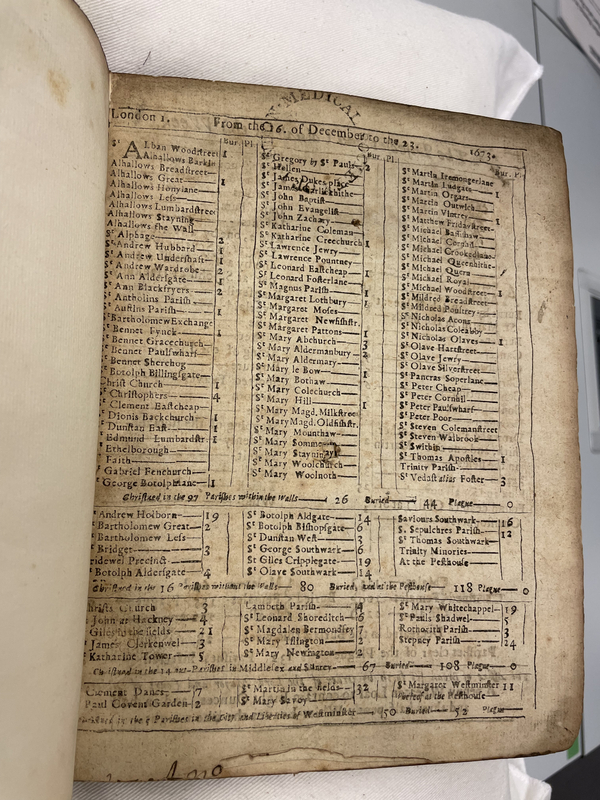 MEDICAL
London 1. From the 16. of December to the 23. 1673.
Bur. Pl.
St Alban Woodstreet 1
Alhallows Barkin
Alhallows Breadstreet
Alhallows Great 1
Alhallows Honylane
Alhallows Less
Alhallows Lumbardstreet
Alhallows Staynin
Alhallows the Wall
St Alphage 2
St Andrew Hubbard 1
St Andrew Undershaft 1
St Andrew Wardrobe 2
St Ann Aldersgate 1
St Ann Blackfryers 2
St Antholins Parish
St Austins Parish 1
St BartholomewExchange
Bennet Fynck 1
Bennet Gracechurch
Bennet Paulswharf
Bennet Sherehog
Botolph Billingsgate
Christ Church 1
Christophers 4
Clement Eastcheap
Dionis Backchurch 1
Dunstan East 1
Edmund Lumbardstr. 1
Ethelborough
Faith
Gabriel Fenchurch
George Botolphlane 1
Bur. Pl.
St Gregory by St Pauls 2
St Hellen
St James Dukes place
St James Garlickhithe
St John Baptist
St John Evangelist
St John Zachary
St Katharine Coleman
St Katharine Creechurch 1
St Lawrence Jewry
St Lawrence Pountney
St Leonard Eastcheap 1
St Leonard Fosterlane
St Magnus Parish 1
St Margaret Lothbury 1
St Margaret Moses
St Margaret Newfishstr.
St Margaret Pattons 1
St Mary Abchurch 3
St Mary Aldermanbury 2
St Mary Aldermary
St Mary le Bow 1
St Mary Bothaw
St Mary Colechurch
St Mary Hill 1
St Mary Magd. Milkstreet
St Mary Magd. Oldfishstr.
St Mary Mounthaw
St Mary Sommerset
St Mary Stayning
St Mary Woolchurch
St Mary Woolnoth
Bur. Pl.
St Martin Iremongerlane
St Martin Ludgate 1
St Martin Orgars
St Martin Outwich
St Martin Vintrey 1
St Matthew Fridaystreet
St Michael Bassishaw
St Michael Cornhil
St Michael Crookedlane
St Michael Queenhithe
St Michael Quern
St Michael Royal
St Michael Woodstreet 1
St Mildred Breadstreet
St Mildred Poultrey
St Nicholas Acons
St Nicholas Coleabby
St Nicholas Olaves 1
St Olave Hartstreet
St Olave Jewry
St Olave Silverstreet
St Pancras Soperlane
St Peter Cheap
St Peter Cornhil
St Peter Paulswharf
St Peter Poor
St Steven Colemanstreet
St Steven Walbrook
St Swithin
St Thomas Apostles 1
Trinity Parish
St Vedast alias Foster 3
Christned in the 97 Parishes within the Walls 26 Buried 44 Plague 0
Andrew Holborn 19
Bartholomew Great 2
Bartholomew Less
Bridget 3
Bridewel Precinct
Botolph Aldersgate 4
St Botolph Aldgate 14
St Botolph Bishopsgate 6
St Dunstan West 3
St George Southwark 6
St Giles Cripplegate 19
St Olave Southwark 14
Saviours Southwark 16
S. Sepulchres Parish 12
St Thomas Southwark
Trinity Minories
At the Pesthouse
Christned in the 16 Parishes without the Walls 80 Buried, and at the Pesthouse 118 Plague 0
Christs Church 3
John at Hackney 4
Giles in the fields 21
James Clerkenwel 3
Katharine Tower 5
Lambeth Parish
St Leonard Shoreditch 6
St Magdalen Bermondsey 7
St Mary Islington 2
St Mary Newington 2
St Mary Whitechappel 19
St Pauls Shadwel 5
Rothorith Parish 3
Stepney Parish 24
Christned in the 14 out-Parishes in Middlesex and Surrey 67 Buried 108 Plague 0
Clement Danes 7
Paul Covent Garden 2
St Martin in the fields 32
St Mary Savoy
St Margaret Westminster 11
Buried at the Pesthouse
Christned in the 5 Parishes in the City and Liberties of Westminster 50 Buried 52 Plague